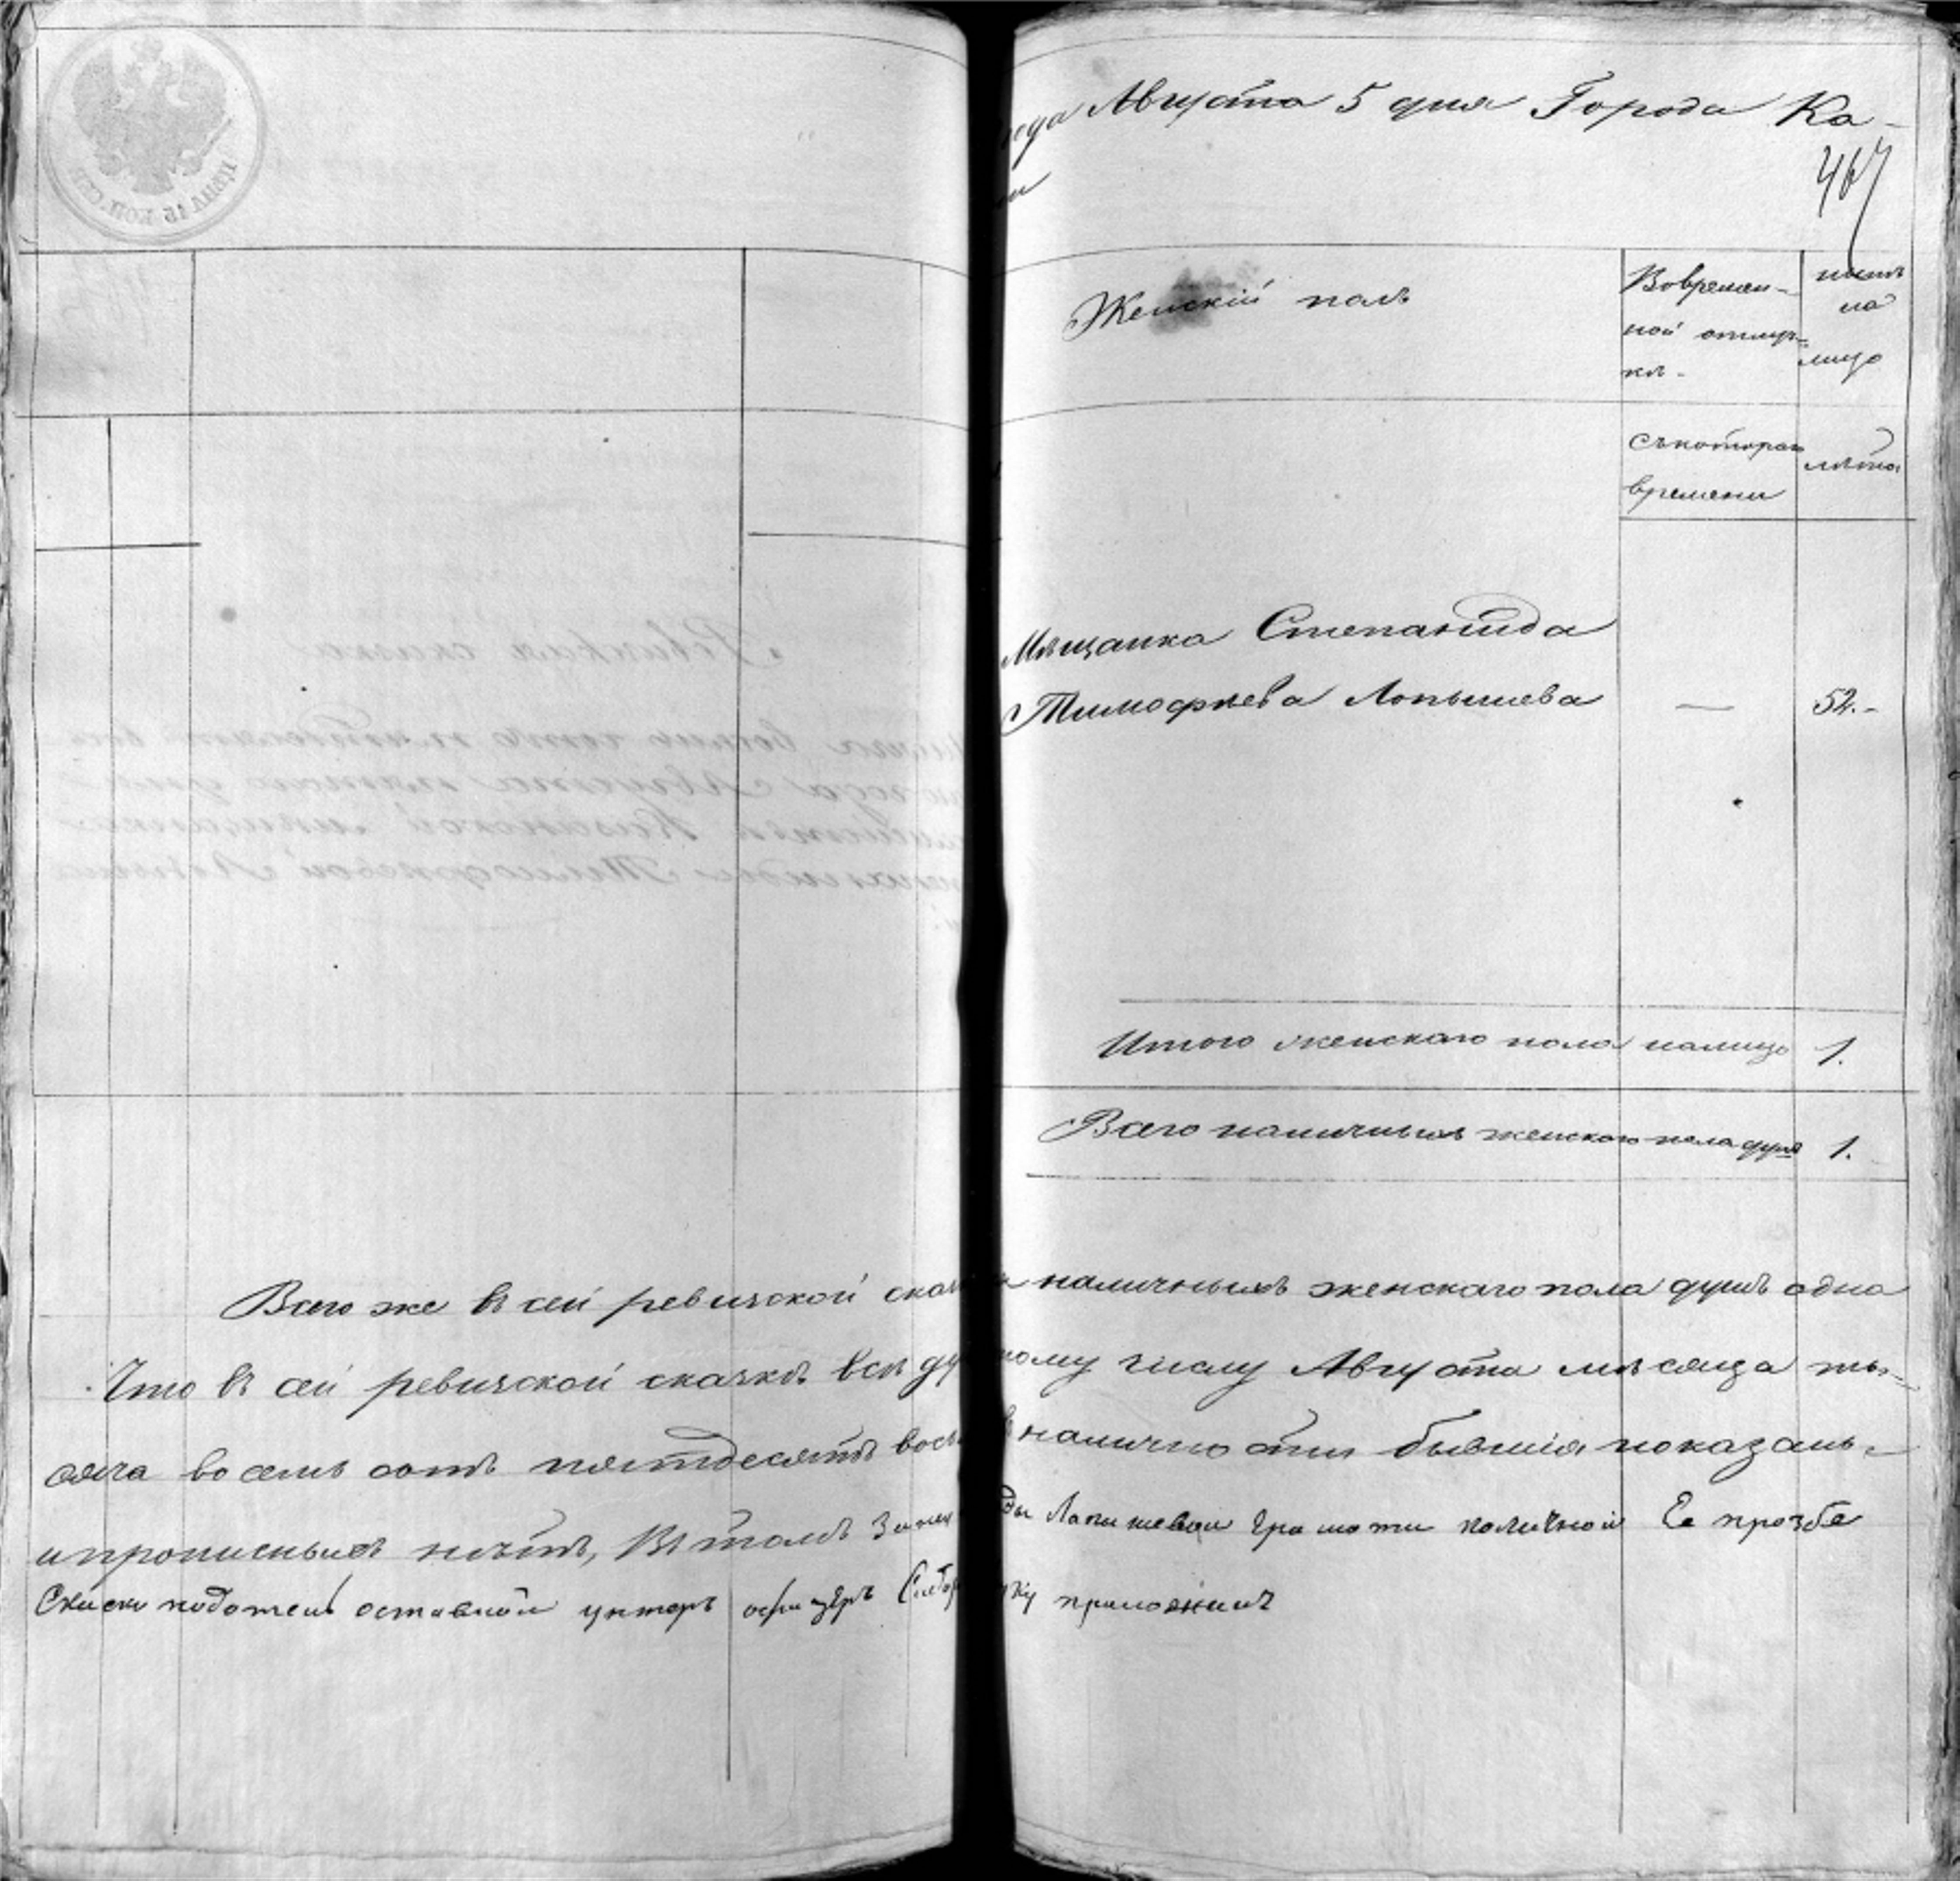 ЦѢНА 15 КОП. СЕР.
года Августа 5 дня Города Ка-
467
Женскій полъ
Вовремен-
ной отлуч-
кѣ.
ныне
на
лицо
Съкотораго
времени
лѣта
Мѣщанка Степанида
Тимофѣева Лопышева — 52.-
Итого женскаго пола налицо 1.
Всего наличныхъ женскаго пола душъ 1.
Всего же въ сей ревизской сказ наличныхъ женскаго пола душъ одна
Что въ сей ревизской сказкѣ всѣ ду ному числу Августа мѣсяца ты-
сяча восемь сотъ пятдесятъ вось в наличности бывшія показаны
и прописныхъ нѣтъ, Въ томъ ды Лапышевой грамоти Ее прозбе
отставной унтеръ офицеръ ку приложилъ